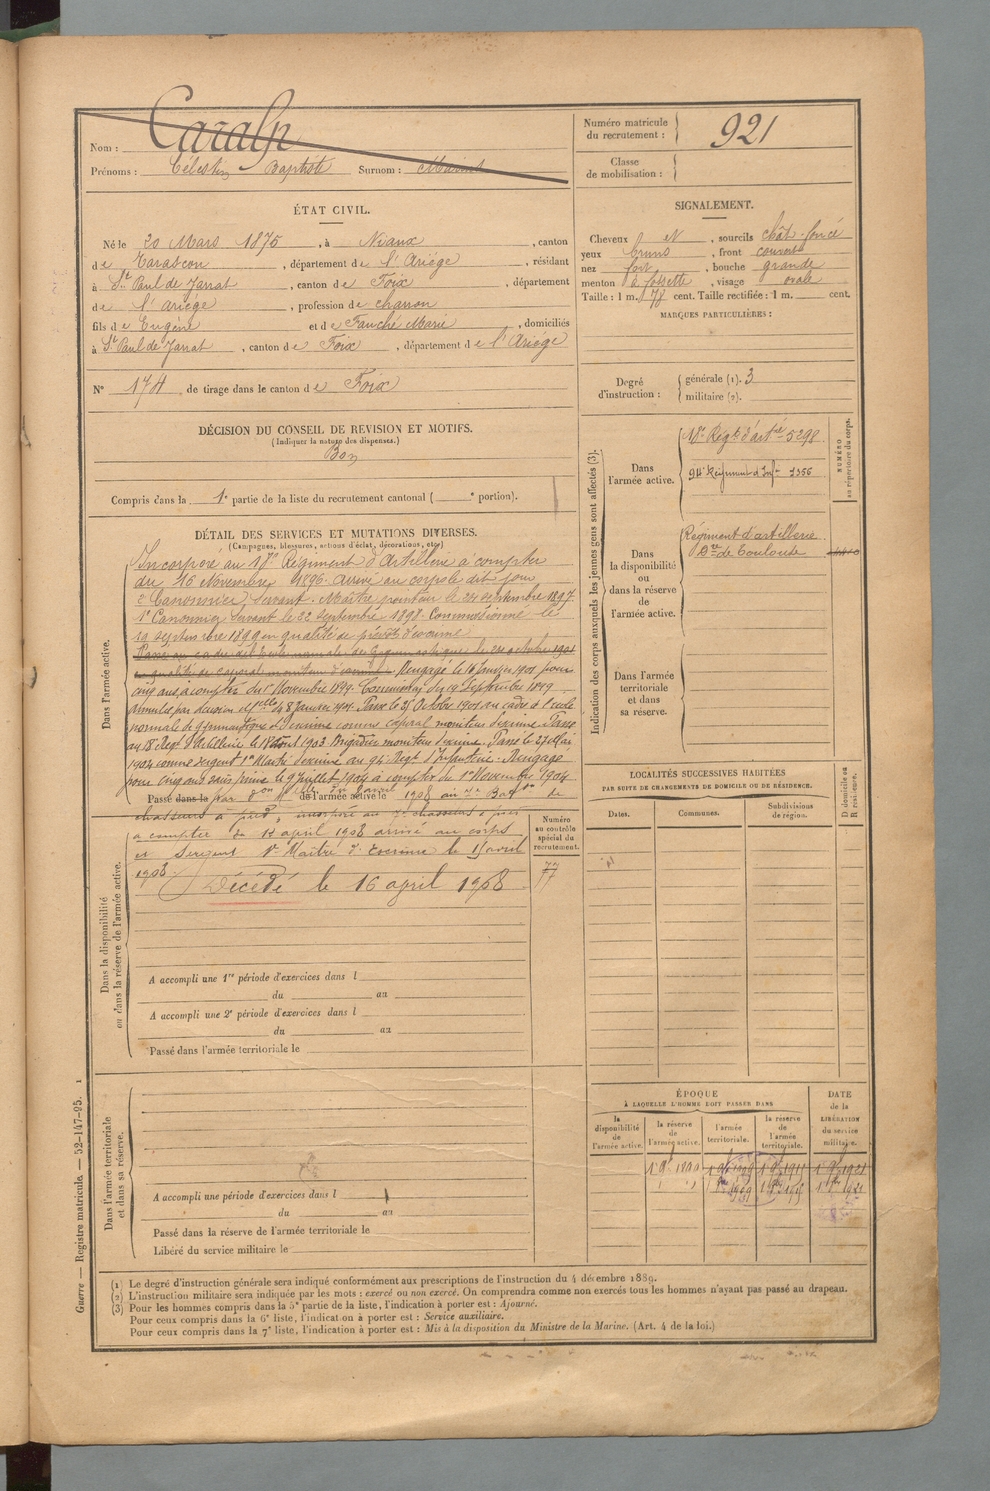 Nom : Caralp
Prénoms : Célestin Baptiste Surnom :
Numéro matricule du recrutement : 921
Classe de mobilisation :
ÉTAT CIVIL.
Né le 20 Mars 1875, à Niaux, canton
de Tarascon, département de l'Ariège, résidant
à St Paul de Jarrat, canton de Foix, département
de l'Ariège, profession de charron
fils de Eugène et de Fauché Marie, domiciliés
à St Paul de Jarrat, canton de Foix, département de l'Ariège
N° 174 de tirage dans le canton de Foix
SIGNALEMENT.
Cheveux et, sourcils chât. foncé
yeux bruns, front couvert
nez fort, bouche grande
menton à fossette, visage ovale
Taille : 1 m. 78 cent. Taille rectifiée : 1 m. cent.
MARQUES PARTICULIÈRES :
Degré d'instruction : générale (1). 3
militaire (2).
DÉCISION DU CONSEIL DE REVISION ET MOTIFS.
(Indiquer la nature des dispenses.)
Bon
Compris dans la 1e partie de la liste du recrutement cantonal ( e portion).
DÉTAIL DES SERVICES ET MUTATIONS DIVERSES.
(Campagnes, blessures, actions d'éclat, décorations, etc.)
Dans l'armée active.
Incorporé au 18e Régiment d'Artillerie à compter
du 16 Novembre 1896. Arrivé au corps le dit jour
2e Canonnier Servant. Maître pointeur le 24 septembre 1897.
1er Canonnier Servant le 22 septembre 1898. Commissionné le
19 septembre 1899 en qualité de prévôt d'escrime
Passé au cadre de l'Ecole normale de Gymnastique le 21 octobre 1901
en qualité de caporal moniteur d'escrime. Rengagé le 16 Janvier 1901 pour
cinq ans, à compter du 1er Novembre 1899. Commission du 19 Septembre 1899
annulée par décision du 8 Janvier 1901. Passé le 21 Octobre 1901 au cadre de l'école
normale de gymnastique et d'escrime comme caporal moniteur d'escrime. Passé
au 18e Régt d'Artillerie le 18 Août 1903 Brigadier moniteur d'escrime. Passé le 27 Mai
1904 comme sergent 1er Maître d'escrime au 94e Régt d'Infanterie. Rengagé
pour cinq ans sans prime le 9 Juillet 1904 à compter du 1er Novembre 1904
Passé dans la par don Mlle du avril 1908 au Baton de
de l'armée active le
chasseurs à pied, incorporé au chasseurs à pied
à compter du 14 april 1908 arrivé au corps
et sergent 1er Maître d'Escrime le 15 avril
1908.
Décédé le 16 april 1908
Numéro au contrôle spécial du recrutement.
77
Dans la disponibilité ou dans la réserve de l'armée active.
A accompli une 1re période d'exercices dans l
du au
A accompli une 2e période d'exercices dans l
du au
Passé dans l'armée territoriale le
Dans l'armée territoriale et dans sa réserve.
A accompli une période d'exercices dans l
du au
Passé dans la réserve de l'armée territoriale le
Libéré du service militaire le
Indication des corps auxquels les jeunes gens sont affectés (3).
NUMÉRO au répertoire du corps.
Dans l'armée active.
18e Régt d'artrie 5298
94e Régiment d'Infie 3356
Dans la disponibilité ou dans la réserve de l'armée active.
Régiment d'artillerie
Don de Toulouse
Dans l'armée territoriale et dans sa réserve.
LOCALITÉS SUCCESSIVES HABITÉES
PAR SUITE DE CHANGEMENTS DE DOMICILE OU DE RÉSIDENCE.
Dates. Communes. Subdivisions de région. D domicile ou R résidence.
ÉPOQUE
À LAQUELLE L'HOMME DOIT PASSER DANS
la disponibilité de l'armée active. la réserve de l'armée active. l'armée territoriale. la réserve de l'armée territoriale.
DATE de la LIBÉRATION du service militaire.
1 9bre 1899 1 9bre 1909 1 9bre 1915 1 9bre 1921
Guerre — Registre matricule. — 52-147-95. 1
(1) Le degré d'instruction générale sera indiqué conformément aux prescriptions de l'instruction du 4 décembre 1889.
(2) L'instruction militaire sera indiquée par les mots : exercé ou non exercé. On comprendra comme non exercés tous les hommes n'ayant pas passé au drapeau.
(3) Pour les hommes compris dans la 5e partie de la liste, l'indication à porter est : Ajourné.
Pour ceux compris dans la 6e liste, l'indication à porter est : Service auxiliaire.
Pour ceux compris dans la 7e liste, l'indication à porter est : Mis à la disposition du Ministre de la Marine. (Art. 4 de la loi.)